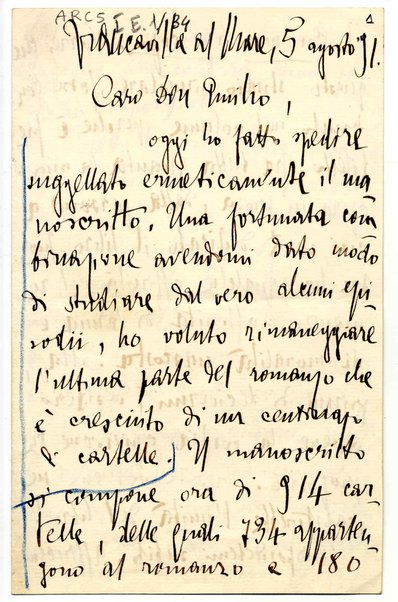 ARCS I E.1/B4
1
Francavilla al Mare, 5 agosto 91.
Caro Don Emilio,
oggi ho fatto spedire
suggellato ermeticamente il ma
noscritto. Una fortunata com
binazione avendomi dato modo
di studiare dal vero alcuni epi
sodii, ho voluto rimaneggiare
l'ultima parte del romanzo che
è cresciuto di un centinajo
di cartelle. Il manoscritto
si compone ora di 914 car
telle, delle quali 734 apparten
gono al romanzo e 180